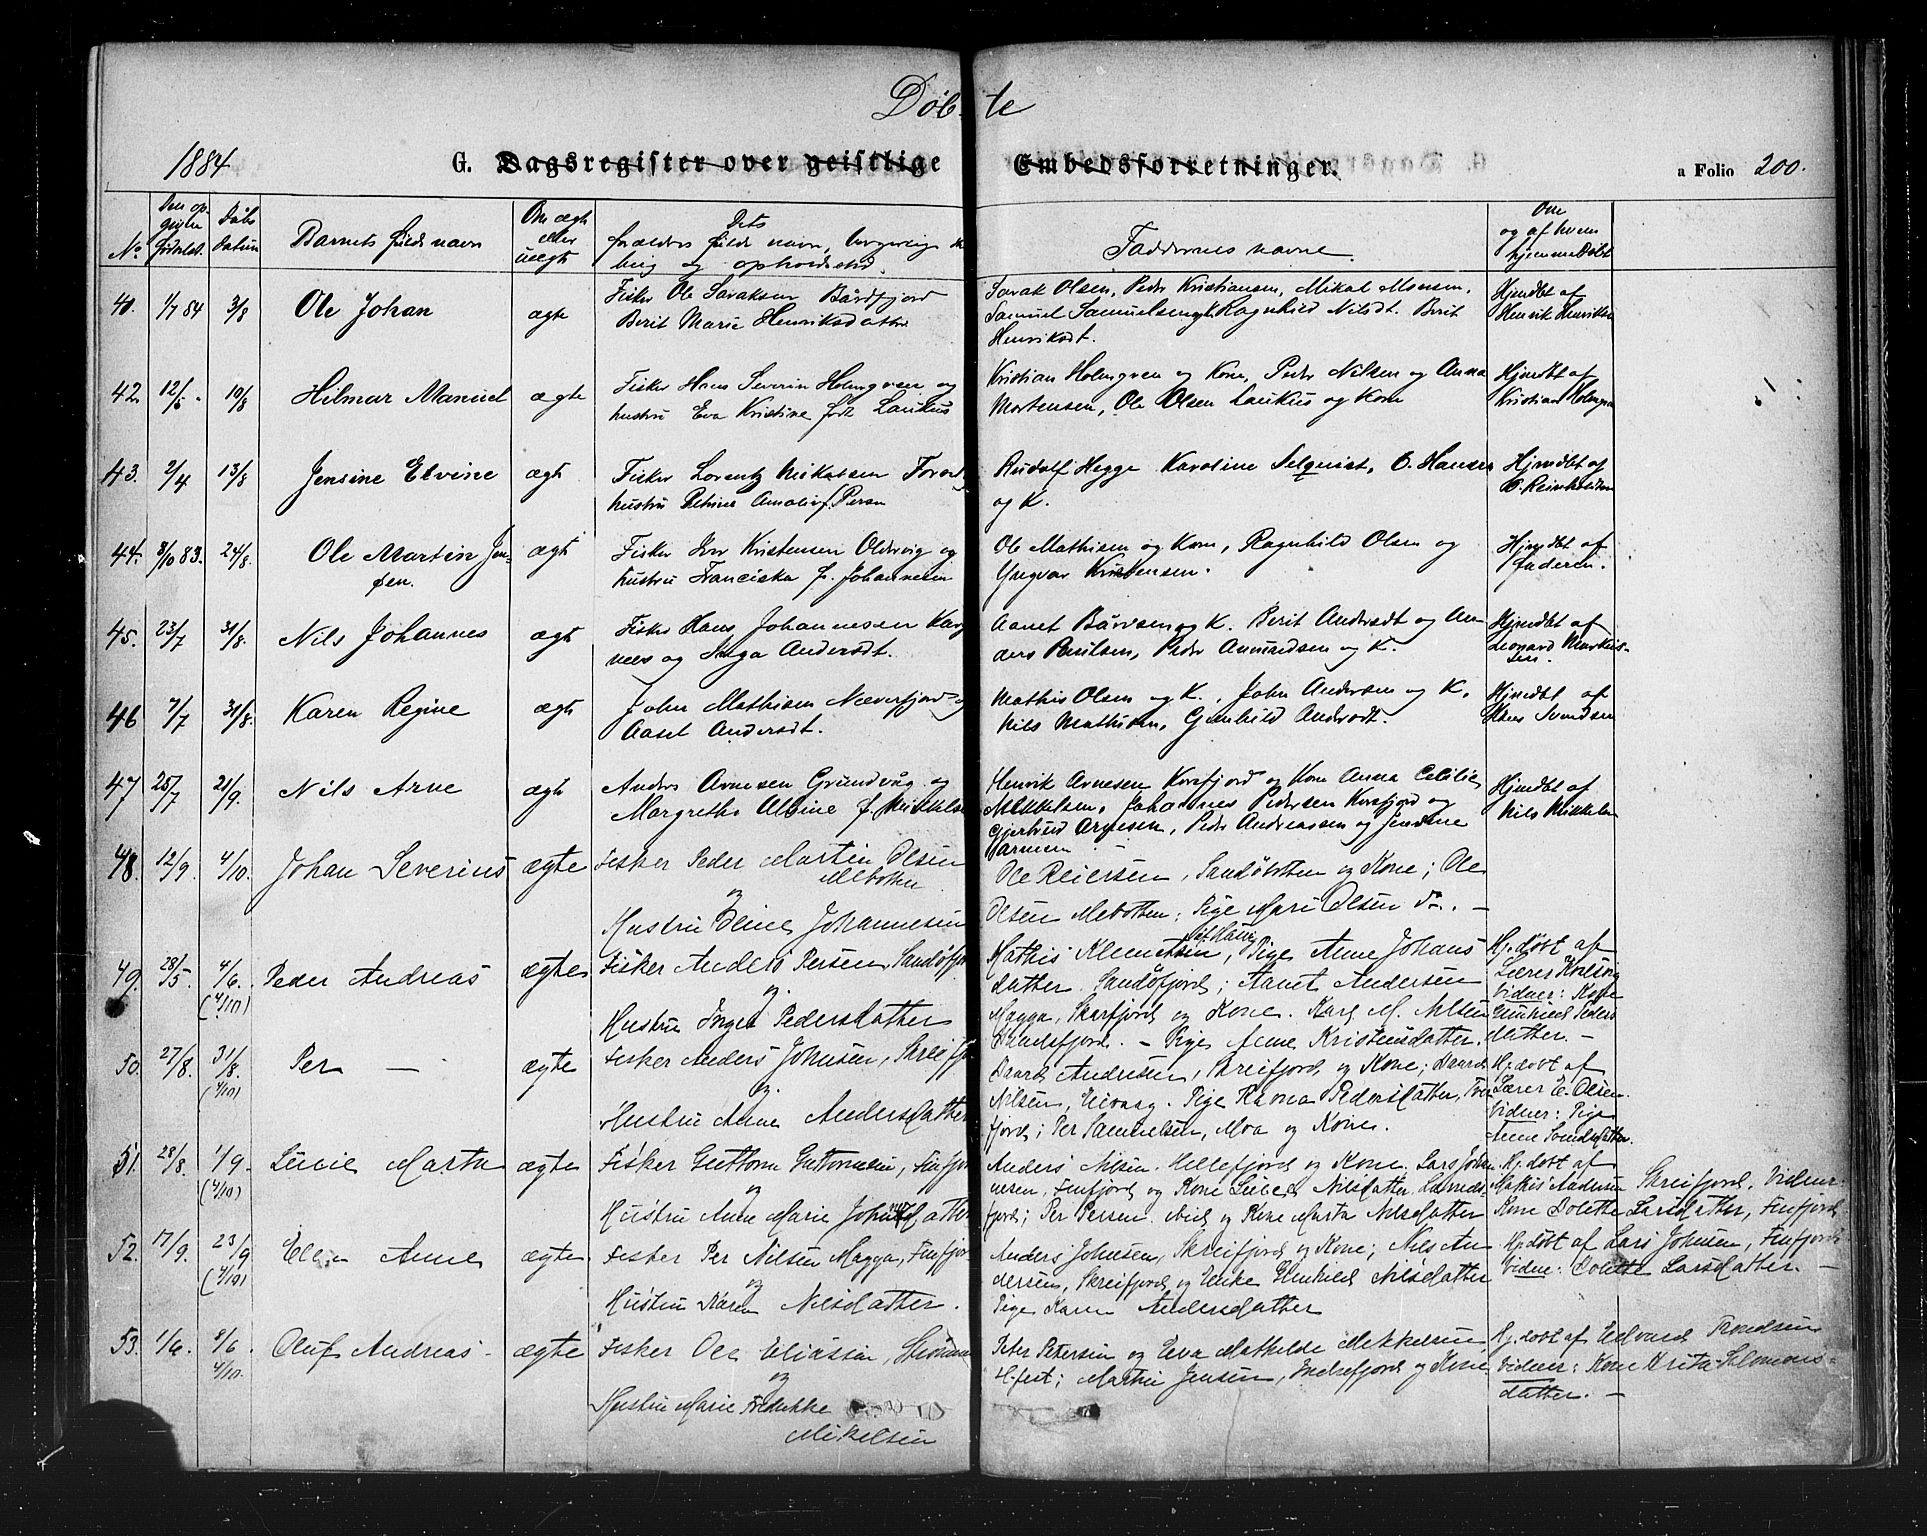 Døbte
1884
G. Dagsregister over geistlige Embedsforretninger. a Folio 200.
No Den opgivne fødselsd. Dåbs datum Barnets fulde navn Om ægte eller uægte Dets forældres fulde navn, og opholdssted. Faddernes navne. Om og af hvem hjemmedøbt
41. 1/7 84 3/8 Ole Johan ægte Fisker Ole Isaksen Bårdfjord
Berit Marie Henriksdatter
Isak Olsen, Peder Kristiansen, Mikal Monsen,
Samuel Samuelsen og K. Ragnhild Nilsdt. Berit
Henriksdt.
Hjemdbt af
Henrik Henriksen
42. 12/6 - 10/8 Hilmar Manuel ægte Fisker Hans Severin Holmgren og
hustru Eva Kristine født Laukus
Kristian Holmgren og Kone, Peder Nilsen og Anna
Mortensen, Ole Olsen Laukus og Kone
Hjemdbt af
Kristian Holmgren
43. 2/4 13/8 Jensine Elvine ægte Fisker Lorentz Mikalsen
hustru Petrine Amalie f. Persen
Rudolf Hegge Karoline Selquist, O. Hansen
og K.
Hjemdbt af
O. Reinholdtsen
44. 8/10 83. 24/8. Ole Martin Jensen. ægte Fisker Jens Kristensen Oldervig og
hustru Franciska f. Johannesen
Ole Mathisen og Kone, Ragnhild Olsen og
Yngvar Kristensen.
Hjemdbt af
faderen.
45. 23/7 31/8. Nils Johannes ægte Fisker Hans Johannesen
næs og Inga Andersdt.
Berit Andersdt og An-
ders Beritsen, Peder Amundsen og K.
Hjemdbt af
Leonard Markussen.
46 7/7 31/8. Karen Regine ægte John Mathisen Næverfjord og
Aaset Andersdt.
Mathis Olsen og K., John Andersen og K.
Nils Mathisen, Gunhild Andersdt.
Hjemdbt af
Hans Svendsen
47 25/7 21/9. Nils Arne ægte Anders Arnesen Grundvåg og
Margrethe Albine f. Mikkelsen
Henrik Arnesen Korsfjord og Kone Anna Cecilie
Mikkelsen, Johannes Pedersen Korsfjord og
Gjertrud Arnesen, Peder Andreassen og Jensine
Hjemdbt af
Nils Mikkelsen
48. 12/9. 4/10. Johan Severins ægte Fisker Peder Martin Olsen
Mebotten
og
Hustru Eline Johannesen
Ole Reiersen, Sandøbotten og Kone; Ole
Olsen Mebotten; Pige Marie Olsen do. -
49. 28/5. 4/6. (4/10) Peder Andreas ægte Fisker Anders Persen, Sandøfjord
og
Hustru Inger Pedersdatter
Mathis Klemetsen, Pige Anne Johans
datter Sandøfjord; Aanet Andersen
Magga, Skarfjord og Kone. Karl M. Nilsen
- Pige Anne Kristensdatter.
Hj. døbt af
Lærer
Vidner: Kone
Gunhild Peders
datter. -
50. 27/8. 31/8. (4/10) Per - ægte Fisker Anders Johnsen, Skreifjord
og
Hustru Anne Andersdatter
Baard Andersen, Skreifjord og Kone; Baard
Nilsen, Eivaag. Pige Ravna Pedersdatter,
fjord; Per Samuelsen, Moa og Kone.
Hj. døbt af
Lærer E. Olsen
Vidner: Pige
Anne Svendsdatter
51. 28/8. 1/9. (4/10) Lucie Marta ægte Fisker Guttorm Guttormsen, Finfjord
og
Hustru Anne Marie Johnsdatter
Anders Nilsen. Hellefjord og Kone. Lars John-
nesen, Finfjord og Kone Nilsdatter.
fjord; Per Persen. og Kone Marta Nilsdatter
Hj. døbt af
Mathis Andersen Skreifjord. Vidner
Kone Dolette Larsdatter, Finfjord
52. 17/9. 23/9 (4/10) Ellen Anne ægte Fisker Per Nilsen Magga, Finfjord
og
Hustru Karen Nilsdatter.
Anders Johnsen, Skreifjord og Kone; Nils An
dersen, Skreifjord og Enke Gunhild Nilsdatter
Pige Karen Andersdatter
Hj. døbt af Lars Johnsen, Finfjord
Vidne: Dolette Larsdatter. -
53. 1/6. 8/6 4/10. Oluf Andreas. ægte Fisker Ole Eliassen,
og
Hustru Marie Fredrikke
Mikelsen
Peter Petersen og Eva Mathilde Mikkelsen
H.fest; Martin Jensen, Indrefjord og Kone
Hj. døbt af Edvard Trondsen
Vidner: Kone Krita Salomons-
datter. -